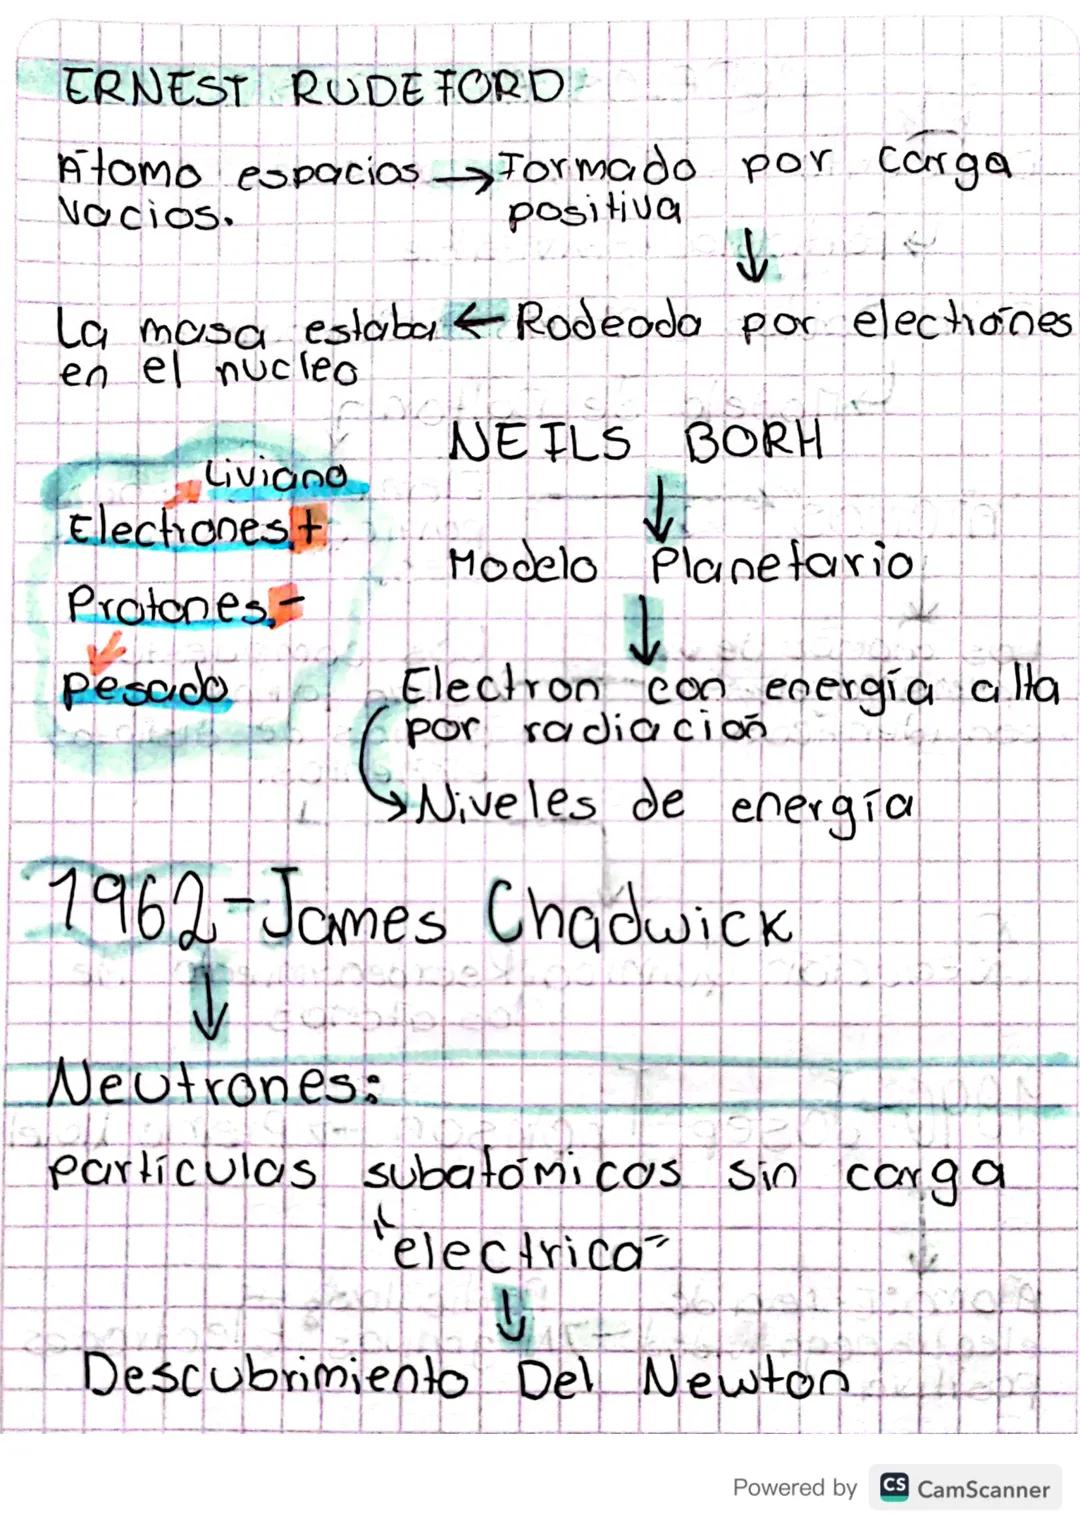 ERNEST RUDEFORD
Átomo espacios → Formado por carga
vacios. positiva
↓
La masa estaba ← Rodeada por electrónes
en el nucleo
NEILS BORH
Liviano
↓
Electrones +
Modelo Planetario
Protones -
↓
pesado
Electron con energía alta
por radiación
→ Niveles de energía
1962-James Chadwick
↓
Neutrones:
partículas subatómicas sin carga
"electrica"
↓
Descubrimiento Del Newton
Powered by CS CamScanner